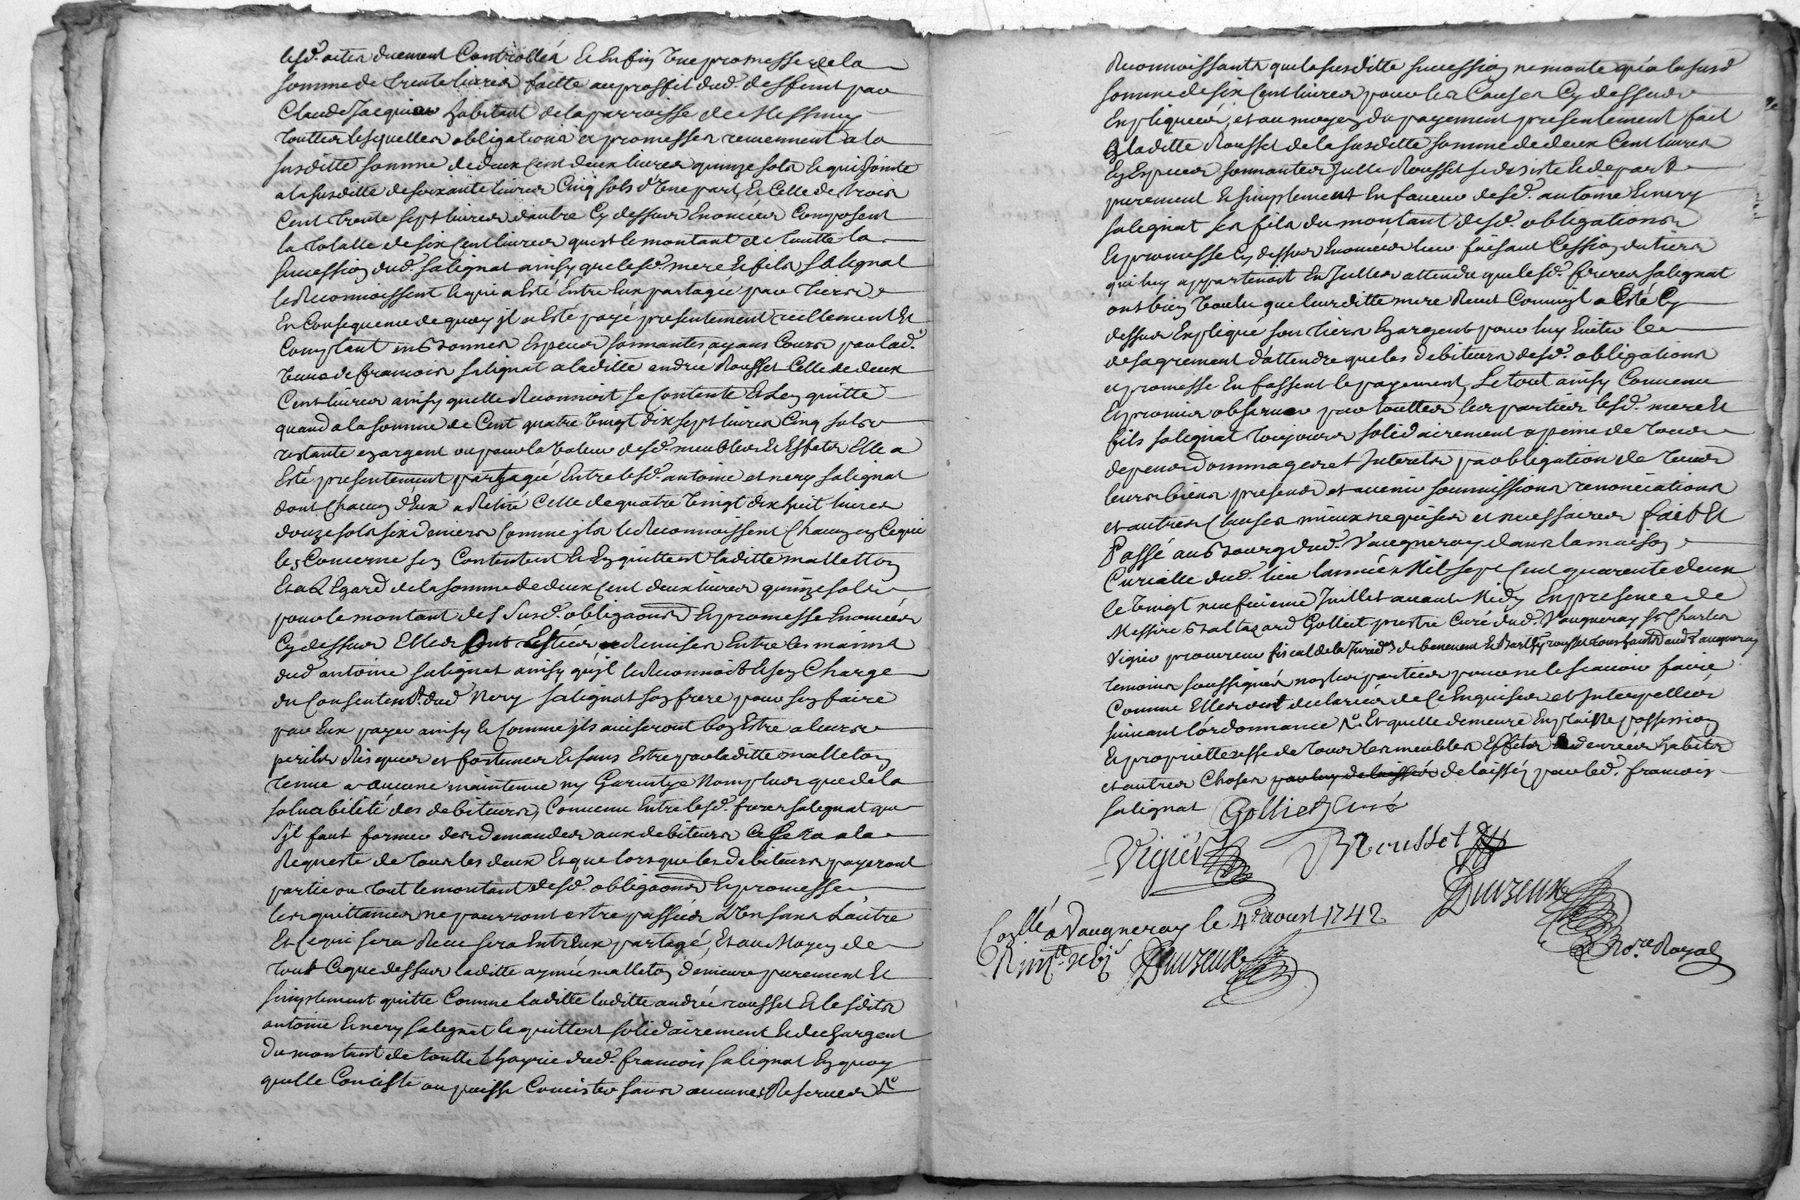 lesd. actes duement Controllés Et Enfin Une promesse de la
somme de trente livres faitte au proffit dud. deffunt par
Claude Jacquier habitant de la parroisse de Messimy
touttes lesquelles obligations et promesses reviennent a la
susditte somme de deux Cent deux livres quinze sols le qui Jointe
a la susditte de soixante livres Cinq sols d'Une part, Et Celle de trois
Cent trente sept livres d'autre Cy dessus Enoncées Composent
la totalle de six Cent livres qu'est le montant de toutte la
succession dud. salignat ainsy que lesd. mere et fils Salignat
le Reconnoissent le qui a Esté Entre Eux partagée par tiers
En Consequence de quoy il a Esté payé presentement reellement Et
Comptant en bonnes Especes sonnantes ayans Cours par lad.
Veuve de francois salignat a laditte andrée Rousset Celle de deux
Cent livres ainsy quelle Reconnoit se Contente Et L'en quitte
quand a la somme de Cent quatre Vingt dix sept livres Cinq sols
restante en argent ou pour la Valeur desd. meubles et Effets Elle a
Esté presentement partagée Entre lesd. antoine et nery salignat
dont Chacun d'Eux a Retiré Celle de quatre Vingt dix huit livres
douze sols six deniers Comme ils le Reconnoissent Chacun En Ce qui
les Concerne s'en Contentent Et En quittent laditte malleton
Et a L'Egard de la somme de deux Cent deux livres quinze sols
pour le montant des Susd. obligaons Et promesse Enoncées
Cy dessus Elles sont Restées Remises Entre les mains
dud. antoine salignat ainsy qu'il le Reconnoit Et s'en Charge
du Consentemt. dud. Nery salignat son frere pour s'en faire
par Eux payer ainsy Et Comme ils aviseront bon Estre a leurs
perils Risques et fortunes Et sans Estre par laditte malleton
tenue a aucune maintenue ny Garentye Nomplus que de la
solvabilité des debiteurs, Convenu Entre lesd. freres salignat que
s'il faut former des demandes aux debiteurs Ce sera a la
Requeste de tous les deux Et que lorsque les debiteurs payeront
partie ou tout le montant desd. obligaons Et promesse
les quittances ne pourront estre passées L'Un sans L'autre
Et Ce qui sera Receu sera Entr'Eux partagé, Et au Moyen de
tout Ce que dessus laditte aymée malleton demeure purement Et
simplement quitte Comme laditte laditte andrée rousset Et lesdits
antoine Et nery salignat la quittent solidairement Et dechargent
du montant de toutte L'hoyrie dud. francois salignat En quoy
qu'elle Consiste ou puisse Consister sans aucunes Reserves
Reconnoissants que la susditte succession ne monte qu'a la susd.
somme de six Cent livres pour les Causes Cy dessus
Expliquées, et au moyen du payement presentement fait
a laditte Rousset de la susditte somme de deux Cent livres
En Especes sonnantes Icelle Rousset se desiste Et depart
purement Et simplement En faveur desd. antoine Et nery
salignat ses fils du montant desd. obligations
Et promesse Cy dessus Enoncées leur faisant Cession du tiers
qui luy appartenoit En Icelles attendu que lesd. freres salignat
ont bien Voulu que leur ditte mere Reçut Comme il a Esté Cy
dessus Expliqué son tiers En argent pour luy Eviter le
desagrement d'attendre que les debiteurs desd. obligations
et promesse En fassent le payement, Le tout ainsy Convenu
Et promis observer par touttes les parties lesd. mere Et
fils salignat toujours solidairement a peine de tous
depens dommages et Interets par obligation de tous
leurs biens presens et avenir soumissions renonciations
et autres Clauses mieux requises et necessaires fait Et
Passé au bourg dud. Vaugneray dans la maison
Curialle dud. lieu l'année Mil sept Cent quarente deux
le Vingt neufvieme Juillet avant Midy En presence de
Messire Baltazard Golliet prestre Curé dud. Vaugneray Sr. Charles
Vigier procureur fiscal de la Juridon. de benevent Et Barthy. rousset tous habitts. aud. Vaugneray
temoins soussignés non les parties pour ne le scavoir faire
Comme Elles ont declarées de Ce Enquises et Interpellées
suivant l'ordonnance Et quelle demeure En plaine possession
Et proprietresse de tous les meubles Effets Et denrées habits
et autres Choses par luy delaissés delaissés par led. francois
salignat Golliet Curé
Vigier Rousset
Duvzeux
Conllé a Vaugneray le 4e aoust 1742
Duvzeux
Nore. Royal